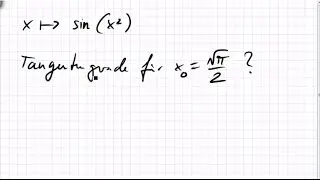 x ↦ sin (x²)
Tangentengerade für x₀ = √π/2 ?